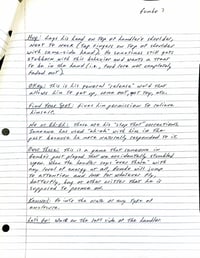 Rambo 3
Hug: lays his head on top of handler's shoulder,
want to reach (tap fingers on top of shoulder
with same-side hand). He sometimes still gets
stubborn with this behavior and wants a treat
to be in the hand (i.e., food lure not completely
faded out).
Okay: this is his general "release" word that
allows him to get up, move out, get toy, etc.
Find Your Spot: gives him permission to relieve
himself.
No or Ah-Ah: these are his "stop that" corrections.
Someone has used "ah-ah" with him in the
past because he more naturally responded to it.
Over There: this is a game that someone in
Rambo's past played that we accidentally stumbled
upon. When the handler says "over there" with
any level of energy at all, Rambo will jump
to attention and look for whatever fly,
butterfly, bug or other critter that he is
supposed to please eat.
Around: to move the walk of any type of
structure.
Let's Go: work on the left side of the handler.